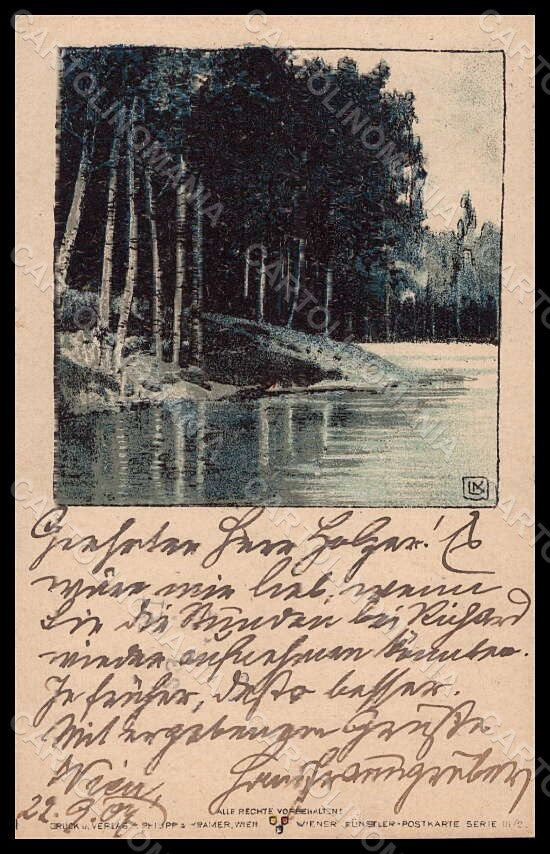 Geehrter Herr Holzer! Es
wäre mir lieb, wenn
Sie die Stunden bei Richard
wieder aufnehmen könnten.
Je früher, desto besser.
Mit ergebenem Gruße
Wien,
22.9.
ALLE RECHTE VORBEHALTEN!
DRUCK u. VERLAG v. PHILIPP & KRAMER, WIEN WIENER KÜNSTLER-POSTKARTE SERIE III/2.
CARTOLINOMANIA